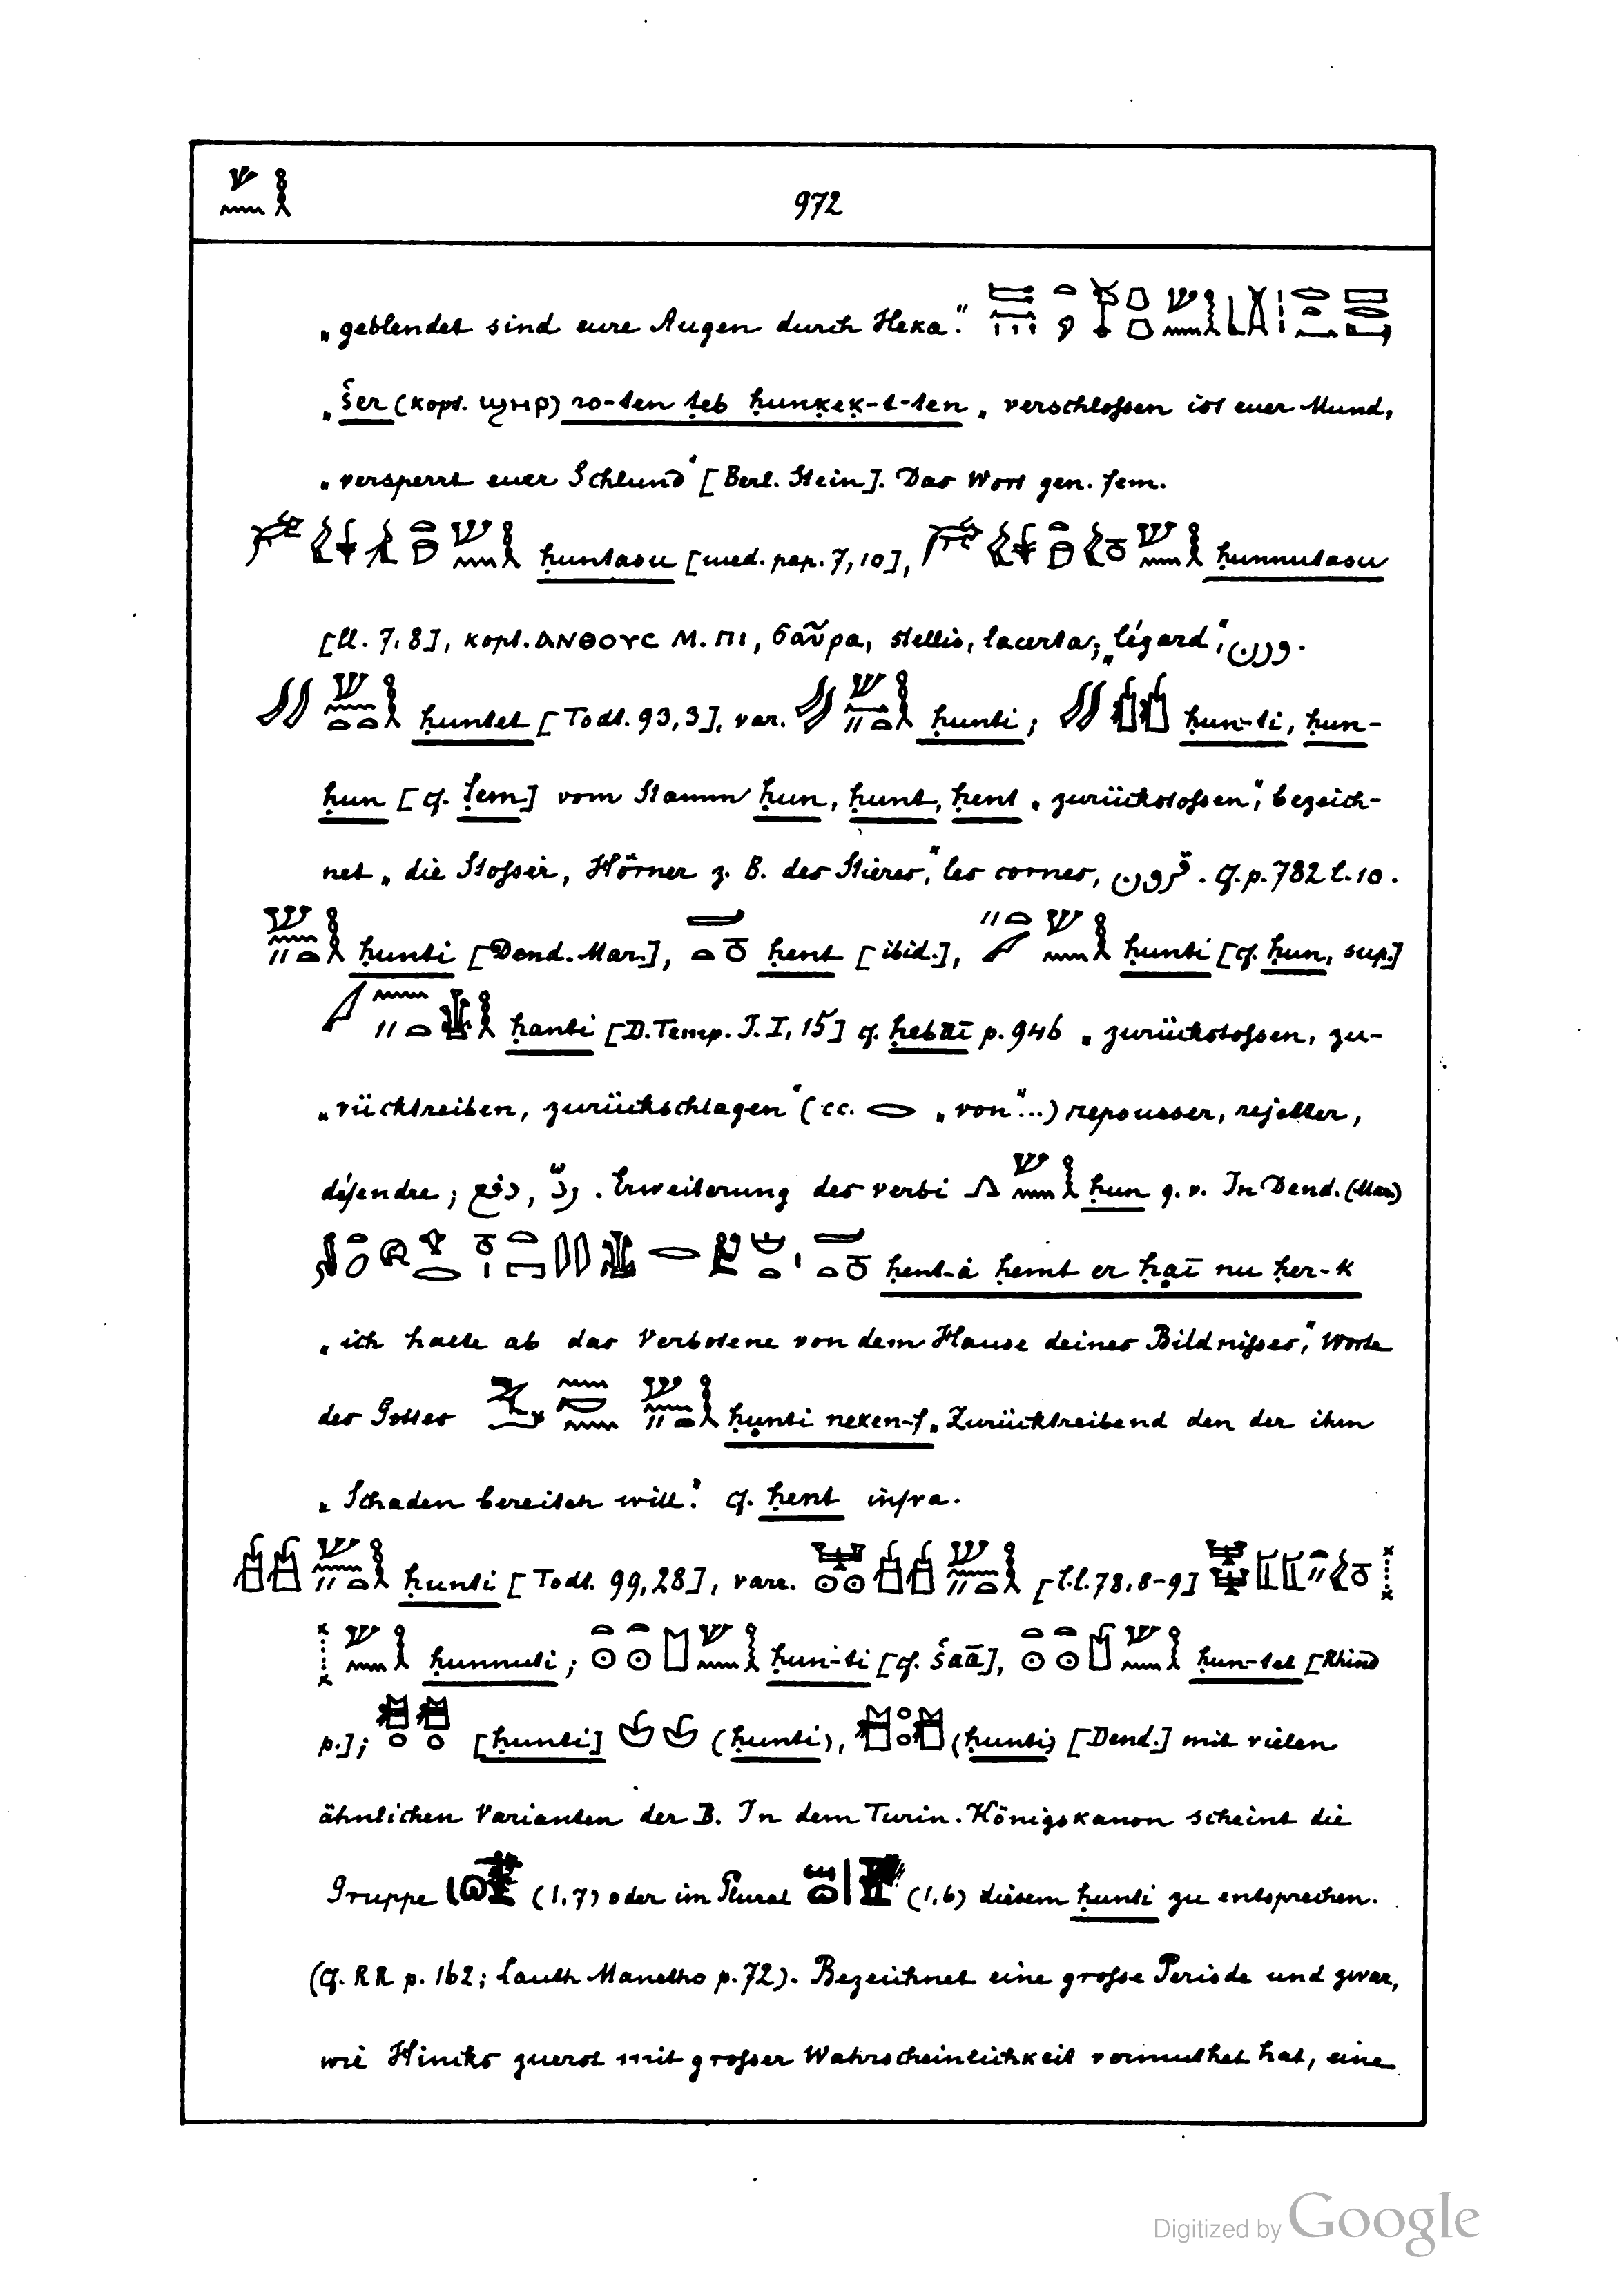 972
„geblendet sind eure Augen durch Heka."
„šer (kopt. ϣⲏⲣ) ro-ten ṭeb ḥunḳeḳ-t-ten „verschlossen ist euer Mund,
„versperrt euer Schlund" [Berl. Stein]. Das Wort gen. fem.
ḥuntasu [med. pap. 7,10], ḥunnutasu
[ll. 7,8], kopt. ⲁⲛⲑⲟⲩⲥ M. ⲡⲓ, σαῦρα, stellio, lacerta; „légard", ورن.
ḥuntet [Todt. 93,3], var. ḥunti; ḥun-ti, ḥun-
ḥun [cf. ṭem] vom Stamm ḥun, ḥunt, ḥent „zurückstoßen", bezeich-
net „die Stoßer, Hörner z. B. des Stieres", les cornes, قرون. cf. p. 782 l. 10.
ḥunti [Dend. Mar.], ḥent [ibid.], ḥunti [cf. ḥun, sup.]
ḥanti [D. Temp. I. I, 15] cf. ḥebāī p. 946 „zurückstoßen, zu-
„rücktreiben, zurückschlagen" (cc. „von"...) repousser, rejetter,
défendre; دفع, ردّ. Erweiterung des verbi ḥun q. v. In Dend. (Mar.)
ḥent-à ḥemt er ḥāī nu ḥer-k
„ich halte ab das Verbotene von dem Hause deines Bildnißes", Worte
des Gottes ḥunti neken-f „Zurücktreibend den der ihm
„Schaden bereiten will." cf. ḥent infra.
ḥunti [Todt. 99,28], varr. [l.l. 78,8-9]
ḥunnuti; ḥun-ti [cf. šaā], ḥun-tet [Rhind
p.]; [ḥunti] (ḥunti), (ḥunti) [Dend.] mit vielen
ähnlichen Varianten der B. In dem Turin. Königskanon scheint die
Gruppe (1,7) oder im Plural (1,6) diesem ḥunti zu entsprechen.
(cf. RR p. 162; Lauth Manetho p. 72). Bezeichnet eine große Periode und zwar,
wie Hincks zuerst mit großer Wahrscheinlichkeit vermuthet hat, eine
Digitized by Google